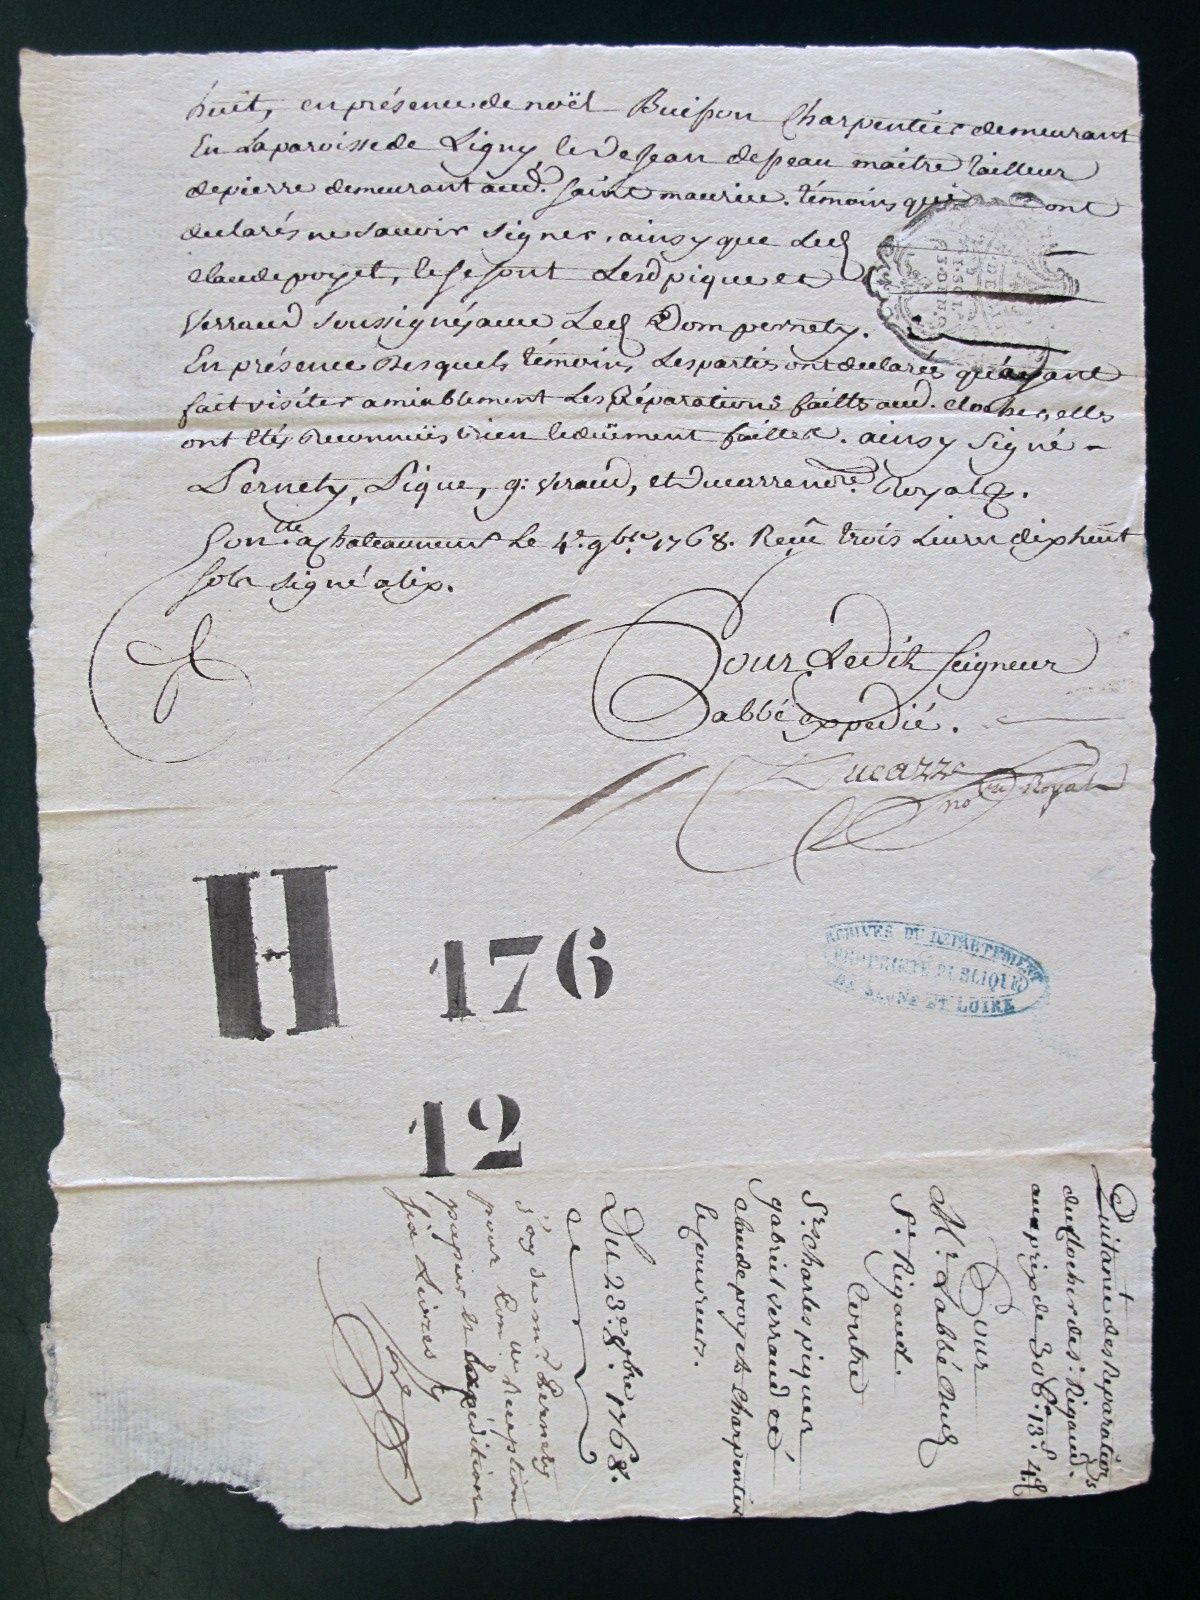 huit, en présence de noël Buisson Charpentier demeurant
En La paroisse de Ligny, et de Jean depeau maitre tailleur
de pierre demeurant aud. Saint maurice. témoins qui ont
declarés ne savoir signer, ainsy que Led
Claude poyet, et se sont Lesd pique et
Verraud soussignés avec Led Dom pernety.
En présence Desquels témoins Les parties ont declarés qu'ayant
fait visiter amiablement Les Réparations faittes aud. clocher, elles
ont étés Reconnües bien et deüement faittes. ainsy signé -
Pernety, Pique, g: Veraud, et Ducarre nore. Royal
Contlle. a Chateauneuf Le 4e. 9bre 1768. Reçu trois Livres dix huit
sols signé alix.
Pour Ledit Seigneur
abbé expedié.
Ducarre
nore Royal
H 176
12
ARCHIVES DU DEPARTEMENT
PROPRIETÉ PUBLIQUE
DE SAONE ET LOIRE
Quitance des Reparations
du Clocher de st. Rigaud.
au prix de 306lt. 13s. 4d.
Pour
Mr. L'abbé de
St. Rigaud.
Contre
Srs. Charles pique
gabriel verraud et
claude poyet Charpentier
et couvreur.
Du 23e. 8bre 1768.
j'ay de md Pernety
pour Con.lle Reception
papier et Expédition
six Livres